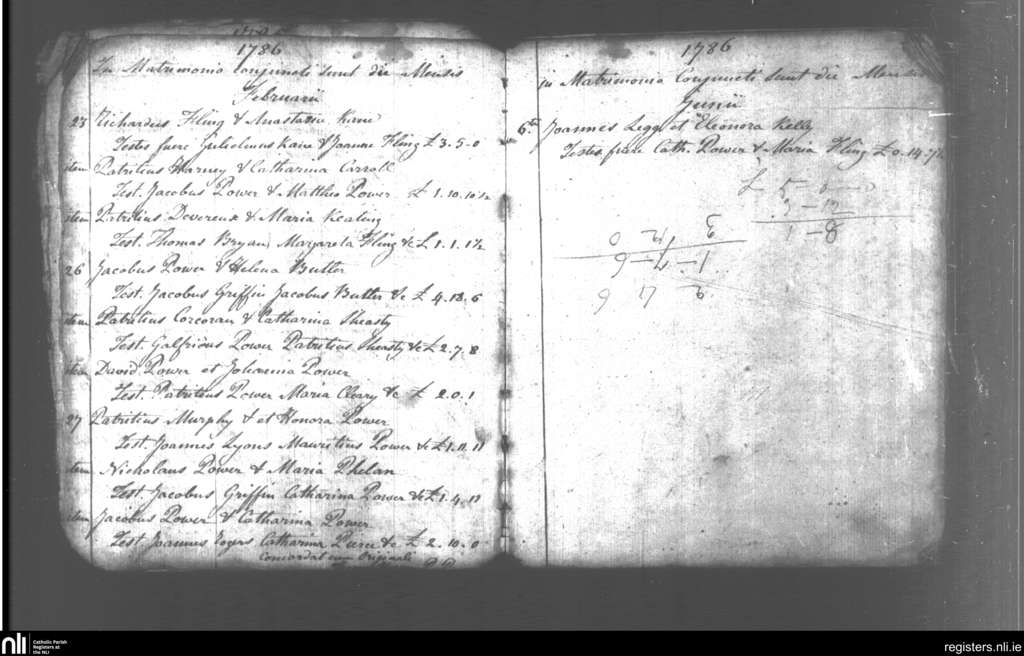 1786
In Matrimonio Conjuncti Sunt die Mensis
Februarii
23 Richardus Fling & Anastasia Kave
Testes fuere Gulielmus Kave & Joanna Fling £ 3. 5. 0
item Patritius Harney & Catharina Carroll
Test. Jacobus Power & Mattheo Power £ 1. 10. 10½
item Patritius Devereux & Maria Keating
Test. Thomas Bryan, Margareta Fling &c £ 1. 1. 1½
26 Jacobus Power & Helena Butler
Test. Jacobus Griffin Jacobus Butler &c £ 4. 18. 6
item Patritius Corcoran & Catharina Sheasty
Test. Galfridus Power Patritius Sheasty &c £ 2. 7. 8
item David Power et Johanna Power
Test. Patritius Power Maria Cleary &c £ 2. 0. 1
27 Patritius Murphy & et Honora Power
Test. Joannes Lyons Mauritius Power &c £ 1. 11
item Nicholaus Power & Maria Phelan
Test. Jacobus Griffin Catharina Power &c £ 1. 4. 11
item Jacobus Power & Catharina Power
Test. Joannes Catharina &c £ 2. 10. 0
Concordat cum Originali
1786
in Matrimonio Conjuncti Sunt die Mensis
Junii
6ta Joannes Legg et Eleonora Kelly
Testes fuere Cath. Power & Maria Fling £ 0. 14. 7½
nli
Catholic Parish
Registers at
the NLI
registers.nli.ie